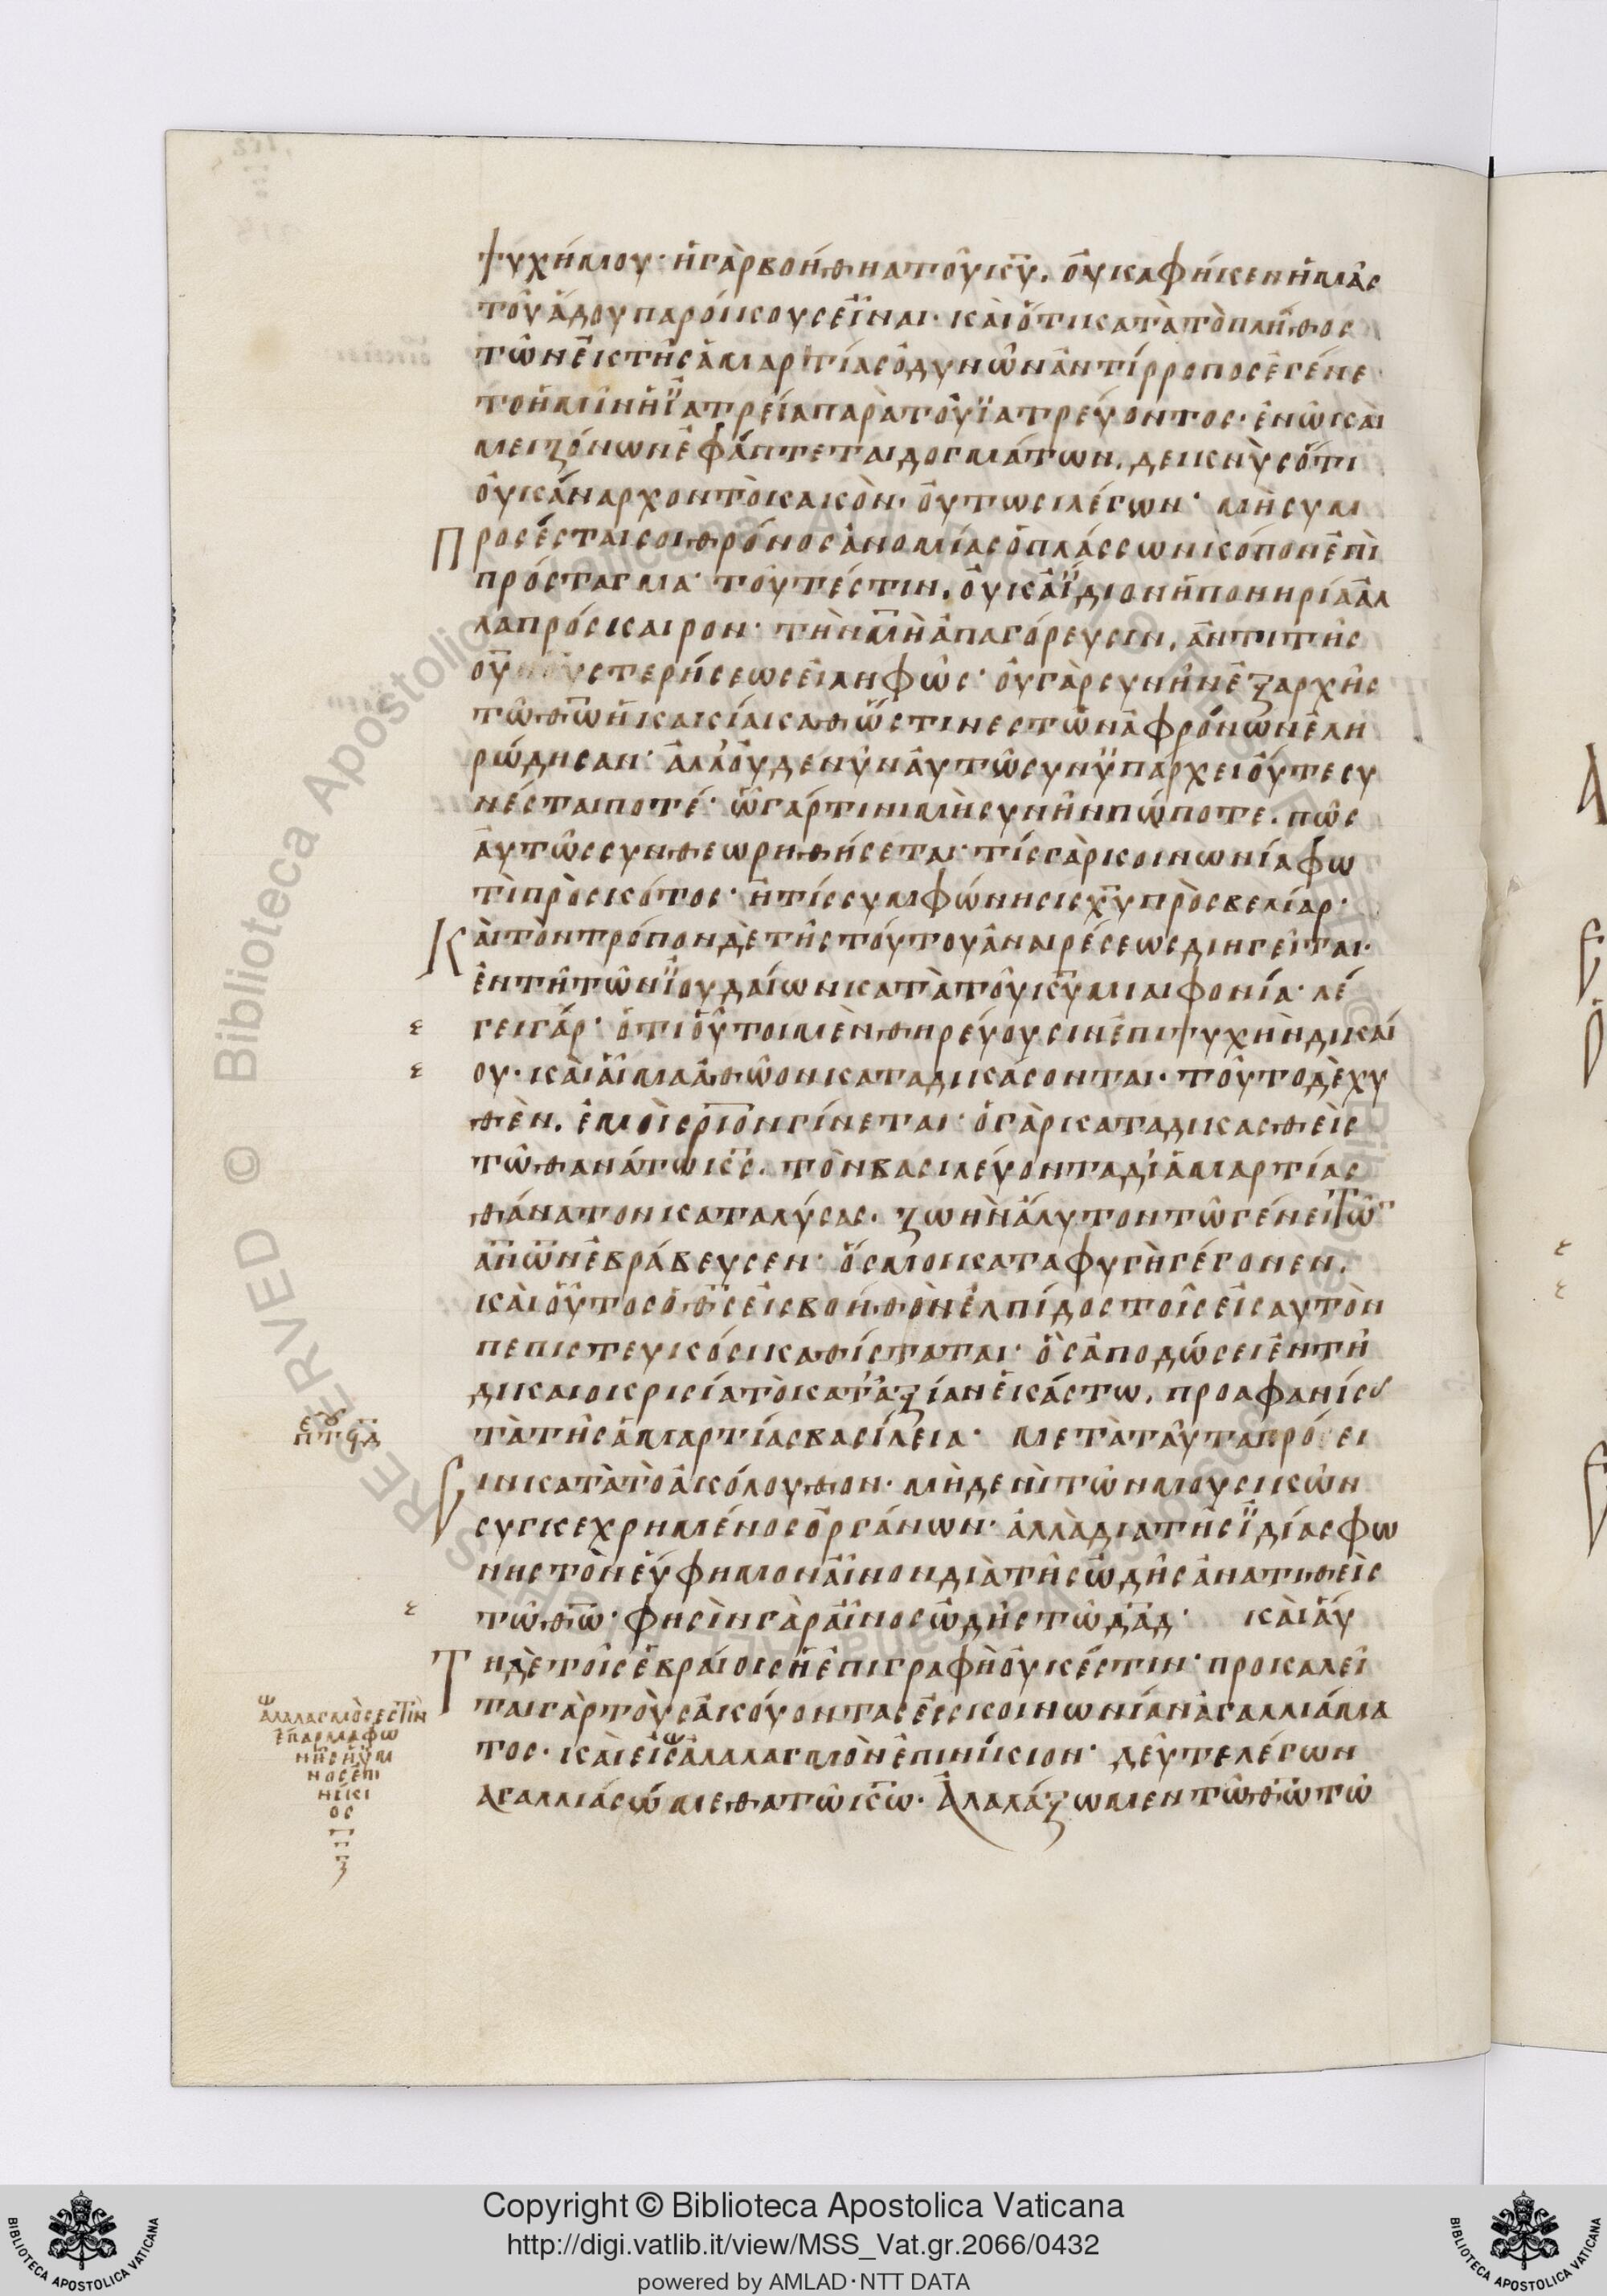 ψυχή μου· ἡ γὰρ βοήθηα τοῦ κ̅υ̅, οὐκ ἀφήκεν ἡμᾶς
τοῦ ἅδου παροίκους εἶναι· καὶ ὅτι κατὰ τὸ πλῆθος
τῶν ἐκ τῆς ἁμαρτίας ὀδυνῶν ἀντίρροπος ἐγένε
το ἡμῖν ἡ ἰατρεία παρὰ τοῦ ἰατρεύοντος· ἐν ὧ καὶ
μειζόνων ἐφάπτεται δογμάτων, δεικνὺς ὅτι
οὐκ ἄναρχον τὸ κακὸν· οὑτωσι λέγων· μὴ συμ
προσέσται σοι θρόνος ἀνομίας ὁ πλάσσων κόπον ἐπὶ
πρόσταγμα· τουτέστιν, οὐκ ἀΐδιον ἡ πονηρία ἀλ
λα πρόσκαιρον· τὴν μὴ ἀπαγόρευσιν, ἀντι τῆς
οὐ στερήσεως εἰληφώς· οὐ γὰρ συνῆν ἐξ αρχῆς
τῶ θ̅ω̅ ἡ κακία καθώς τινες τῶν ἀφρόνων ἐλη
ρώδησαν· ἀλλ' οὐδε νῦν αὐτῶ συνϋπάρχει οὔτε συ
νέσταί ποτέ· ὧ γάρ τινι μὴ συνῆν πώποτε, πῶς
αὐτῶ συνθεωρηθήσεται· τίς γὰρ κοινωνία φω
τὶ πρὸς κότος· ἢ τίς συμφώνησις χ̅υ̅ πρὸς βελίαρ·
Καὶ τὸν τρόπον δὲ τῆς τούτου ἀναιρέσεως διηγεῖται·
ἐν τῆ τῶν ἰουδαίων κατὰ τοῦ κ̅υ̅ μιαιφονία· λέ
γει γάρ· ὅτι οὗτοι μὲν θηρεύουσιν ἐπι ψυχὴν δικαί
ου· καὶ αἷμα ἀθῶον καταδικάσονται· τοῦτο δὲ χυ
θὲν, ἐμοὶ σ̅ρ̅ιον γίνεται· ὁ γὰρ καταδικασθεὶς
τῶ θανάτω κ̅ς̅, τὸν βασιλεύοντα δι' ἁμαρτίας
θάνατον καταλύσας, ζωὴν ἄλυτον τῶ γένει τῶ
α̅ν̅ω̅ν̅ ἐβράβευσεν· ὅς μοι καταφυγὴ γέγονεν,
καὶ οὗτος ὁ θ̅ς̅ εἰς βοήθὸν ἐλπίδος τοῖς εἰς αυτὸν
πεπιστευκόσι καθίσταται· ὃς ἀποδώσει ἐν τῆ
δικαιοκρισία τὸ κατ' ἀξίαν ἑκάστω, προαφανίσ
τὰ τῆς ἁμαρτίας βασίλεια· μετὰ ταῦτα πρό ει
ιν κατὰ τὸ ἀκόλουθον· μὴδενὶ τῶν μουσικῶν
συγκεχρημένος ὀργάνων· ἀλλὰ δια τῆς ἰδίας φω
νης τὸν εὔφημον αἶνον διὰ τῆς ὠδῆς ἀνατιθεὶς
τῶ θ̅ω̅· φησὶν γὰρ αἶνος ὠδῆς τῶ δ̅α̅δ̅· καὶ αὕ
Τη δὲ τοῖς ἑβραίοις ἡ ἐπιγραφὴ οὐκ ἔστιν· προκαλεῖ
ται γὰρ τοὺς ἀκούοντας εἰς κοινωνίαν ἀγαλλιάμα
τος· καὶ εἰς ἀλαλαγμὸν ἐπινίκιον· δεῦτε λέγων
Αγαλλιάσώμεθα τῶ κ̅ω̅· Ἀλαλάξωμεν τῶ θ̅ω̅ τῶ
ἀλαλαγμὸς ἐστὶν
ἔπαρμα φω
νῆς ἢ ὕμ
νος ἐπι
νίκι
ος
Copyright © Biblioteca Apostolica Vaticana
http://digi.vatlib.it/view/MSS_Vat.gr.2066/0432
powered by AMLAD·NTT DATA
BIBLIOTECA APOSTOLICA VATICANA
BIBLIOTECA APOSTOLICA VATICANA